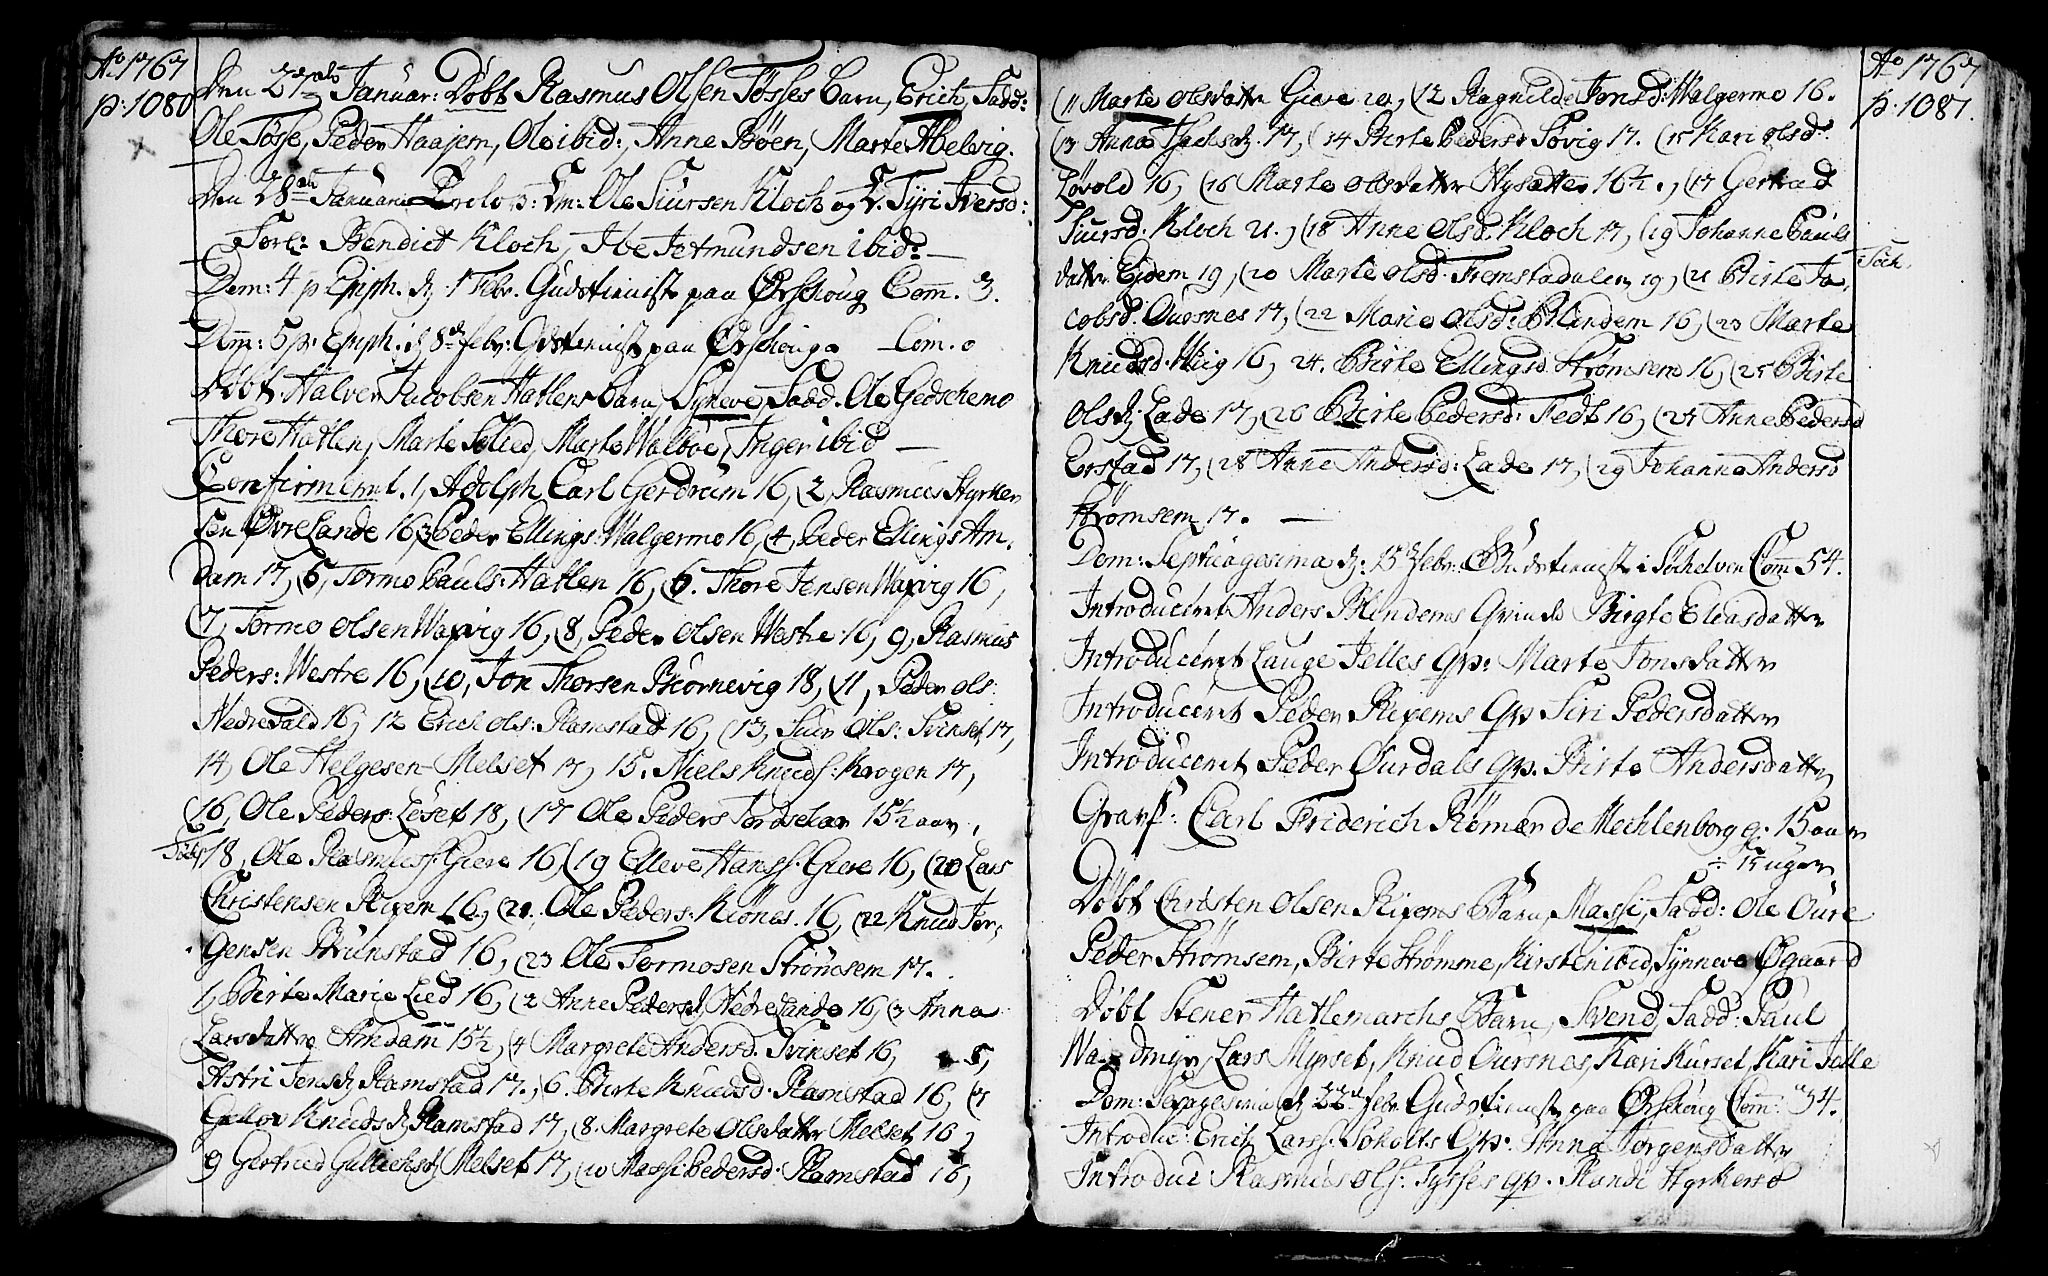 Ao 1767
p. 1080
Den 27de Januar: Döbt Rasmus Olsen Tösses Barn, Erich, Fadd:
Ole Tösse, Peder Haajem, Ole ibid:, Anne Böen, Marte Abelvig.
Den 28de Januari Trolov: Dm: Ole Siursen Kloch og D. Syri Iversd:
Forl: Bendict Kloch, Ibe Jetmundsen ibid: —
Dom: 4 p Epiph. d. 1 Febr. Gudstienist paa Ørschoug Com. 3.
Dom: 5 p. Epiph. d 8de Febr: Gdstenist paa Ørschouga Com. 0
Döbt Halver Jacobsen Hatlens Barn Syneve, Fadd. Ole Gedschemo
Thore Hatlen, Marte Solied, Marte Walböe, Inger ibid —
Confirmeret. 1, Adolph Carl Gerdrum 16, (2, Rasmus Styrker
sen Øvre Lande 16, 3, Peder Ellings: Walgermo 16, (4, Peder Ellings Am.
dam 17, (5, Tormo Pauls: Hatlen 16, (6. Thore Jensen Waxvig 16,
(7, Tormo Olsen Waxvig 16, (8, Peder Olsen Westre 16, 9, Rasmus
Peders: Westre 16, (10, Jon Thorsen Biörnevig 18, (11, Peder Ols:
Nedrevald 16, 12 Erich Ols: Ramstad 16, (13, Siur Ols: Svinset 17,
14, Ole Helgesen Melset 17, 15. Niels Knuds: Krogen 17,
(16, Ole Peders: Löset 18, (17 Ole Peders Tordselar 15½ aar,
18, Ole Rasmuss: Giere 16, (19 Elleve Hanss: Giere 16, (20 Lars
Christensen Rixem 16, (21. Ole Peders: Kiönes. 16, (22 Knud Jör,
gensen Brunstad 16, (23 Ole Tormosen Strömsem 17.
1, Birte Marie Lied 16, (2 Anne Pedersd, Nedre Lande 16, (3 Anna
Larsdatter Amdam 15½, (4 Margrete Andersd. Svinset 16, 5,
Astri Jensd. Ramstad 17., (6. Birte Knudsd. Ramstad 16, (7
Knudsd. Ramstad 17, (8. Margrete Olsdatter Melset 16,
9 Gertrud Gulleichsd. Melset 17, (10 Massi Pedersd: Ramstad 16,
Ao 1767
p. 1081.
(11 Marte Olsdattr Giere 20, (12 Ragnilde Jonsd: Walgermo 16.
(13 Anna Isachsd. 17, (14 Birte Pedersd Søvig 17. (15 Kari Olsd:
Løvold 16, (16 Marte Olsdatter Nysætter 16½., (17 Gertrud
Siursd. Kloch 21., (18 Anne Olsd. Kloch 17, (19 Johanne Pauls
datter Eidem 19, (20 Marte Olsd. Fremstadalen 19, (21 Birte Ja,
cobsd. Oursnes 17, (22 Marie Olsd: Blindem 16, (23 Marte
Knudsd. Wiig 16, 24. Birte Ellingsd. Strømsem 16, (25 Birte
Olsd. Lade 17, (26 Birte Pedersd: Tedt 16, (27 Anne Pedersd
Erstad 17, (28 Anne Andersd: Lade 17, (29 Johanna Andersd
Strømsem 17. —
Dom: Septuagesima d: 15de Febr: Gudstienist i Söchelven Com 54.
Introduceret Anders Blindems Qvinde Birgte Eliasdatter
Introduceret Lauge Jelles Qv: Marte Jonsdatter
Introduceret Peder Rixems Qv. Siri Pedersdatter
Introduceret Peder Øurdals Qv. Birte Andersdatter
Grafs: Carl Friderich Römær de Mechlenborg g: 15 aar
÷ 15 uger
Döbt Christen Olsen Rixems Barn, Massi, Fadd: Ole Oure
Peder Strömsem, Birte Strømme, Kirsten ibid, Synneve Øgaard
Döbt Stener Hatlemarchs Barn, Svend, Fadd: Paul
Lars Myrset, Knud Oursnes, Kari Kurset, Kari Jelle
Dom: Sexagesima d 22de Febr. Gudstienist paa Ørschoug Com: 34.
Introduc: Erich Larss: Soholts Qv: Anna Jørgensdatter
Introduc Rasmus Ols: Tysses qv. Randi Styrkersd